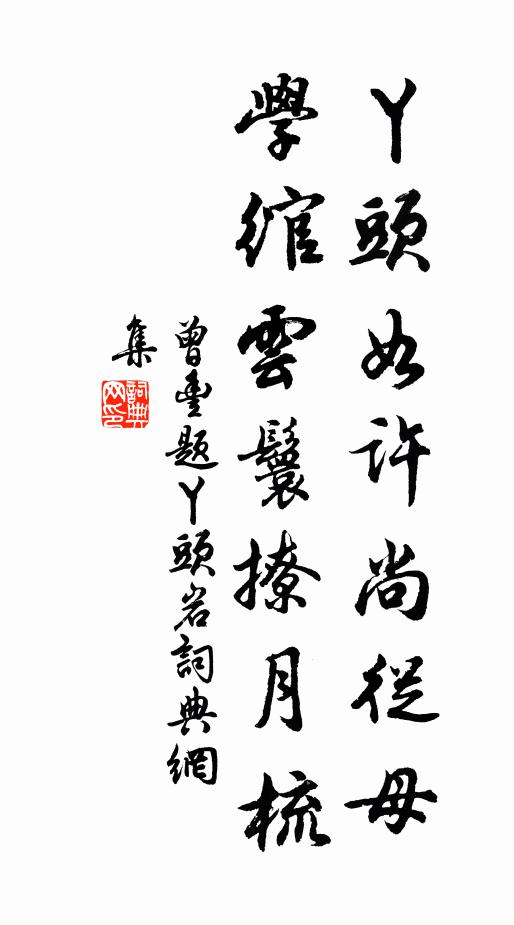 丫頭如許尚從母
學綰雲鬟撩月梳
曾豐題丫頭岩詞典網
集
詞典網印